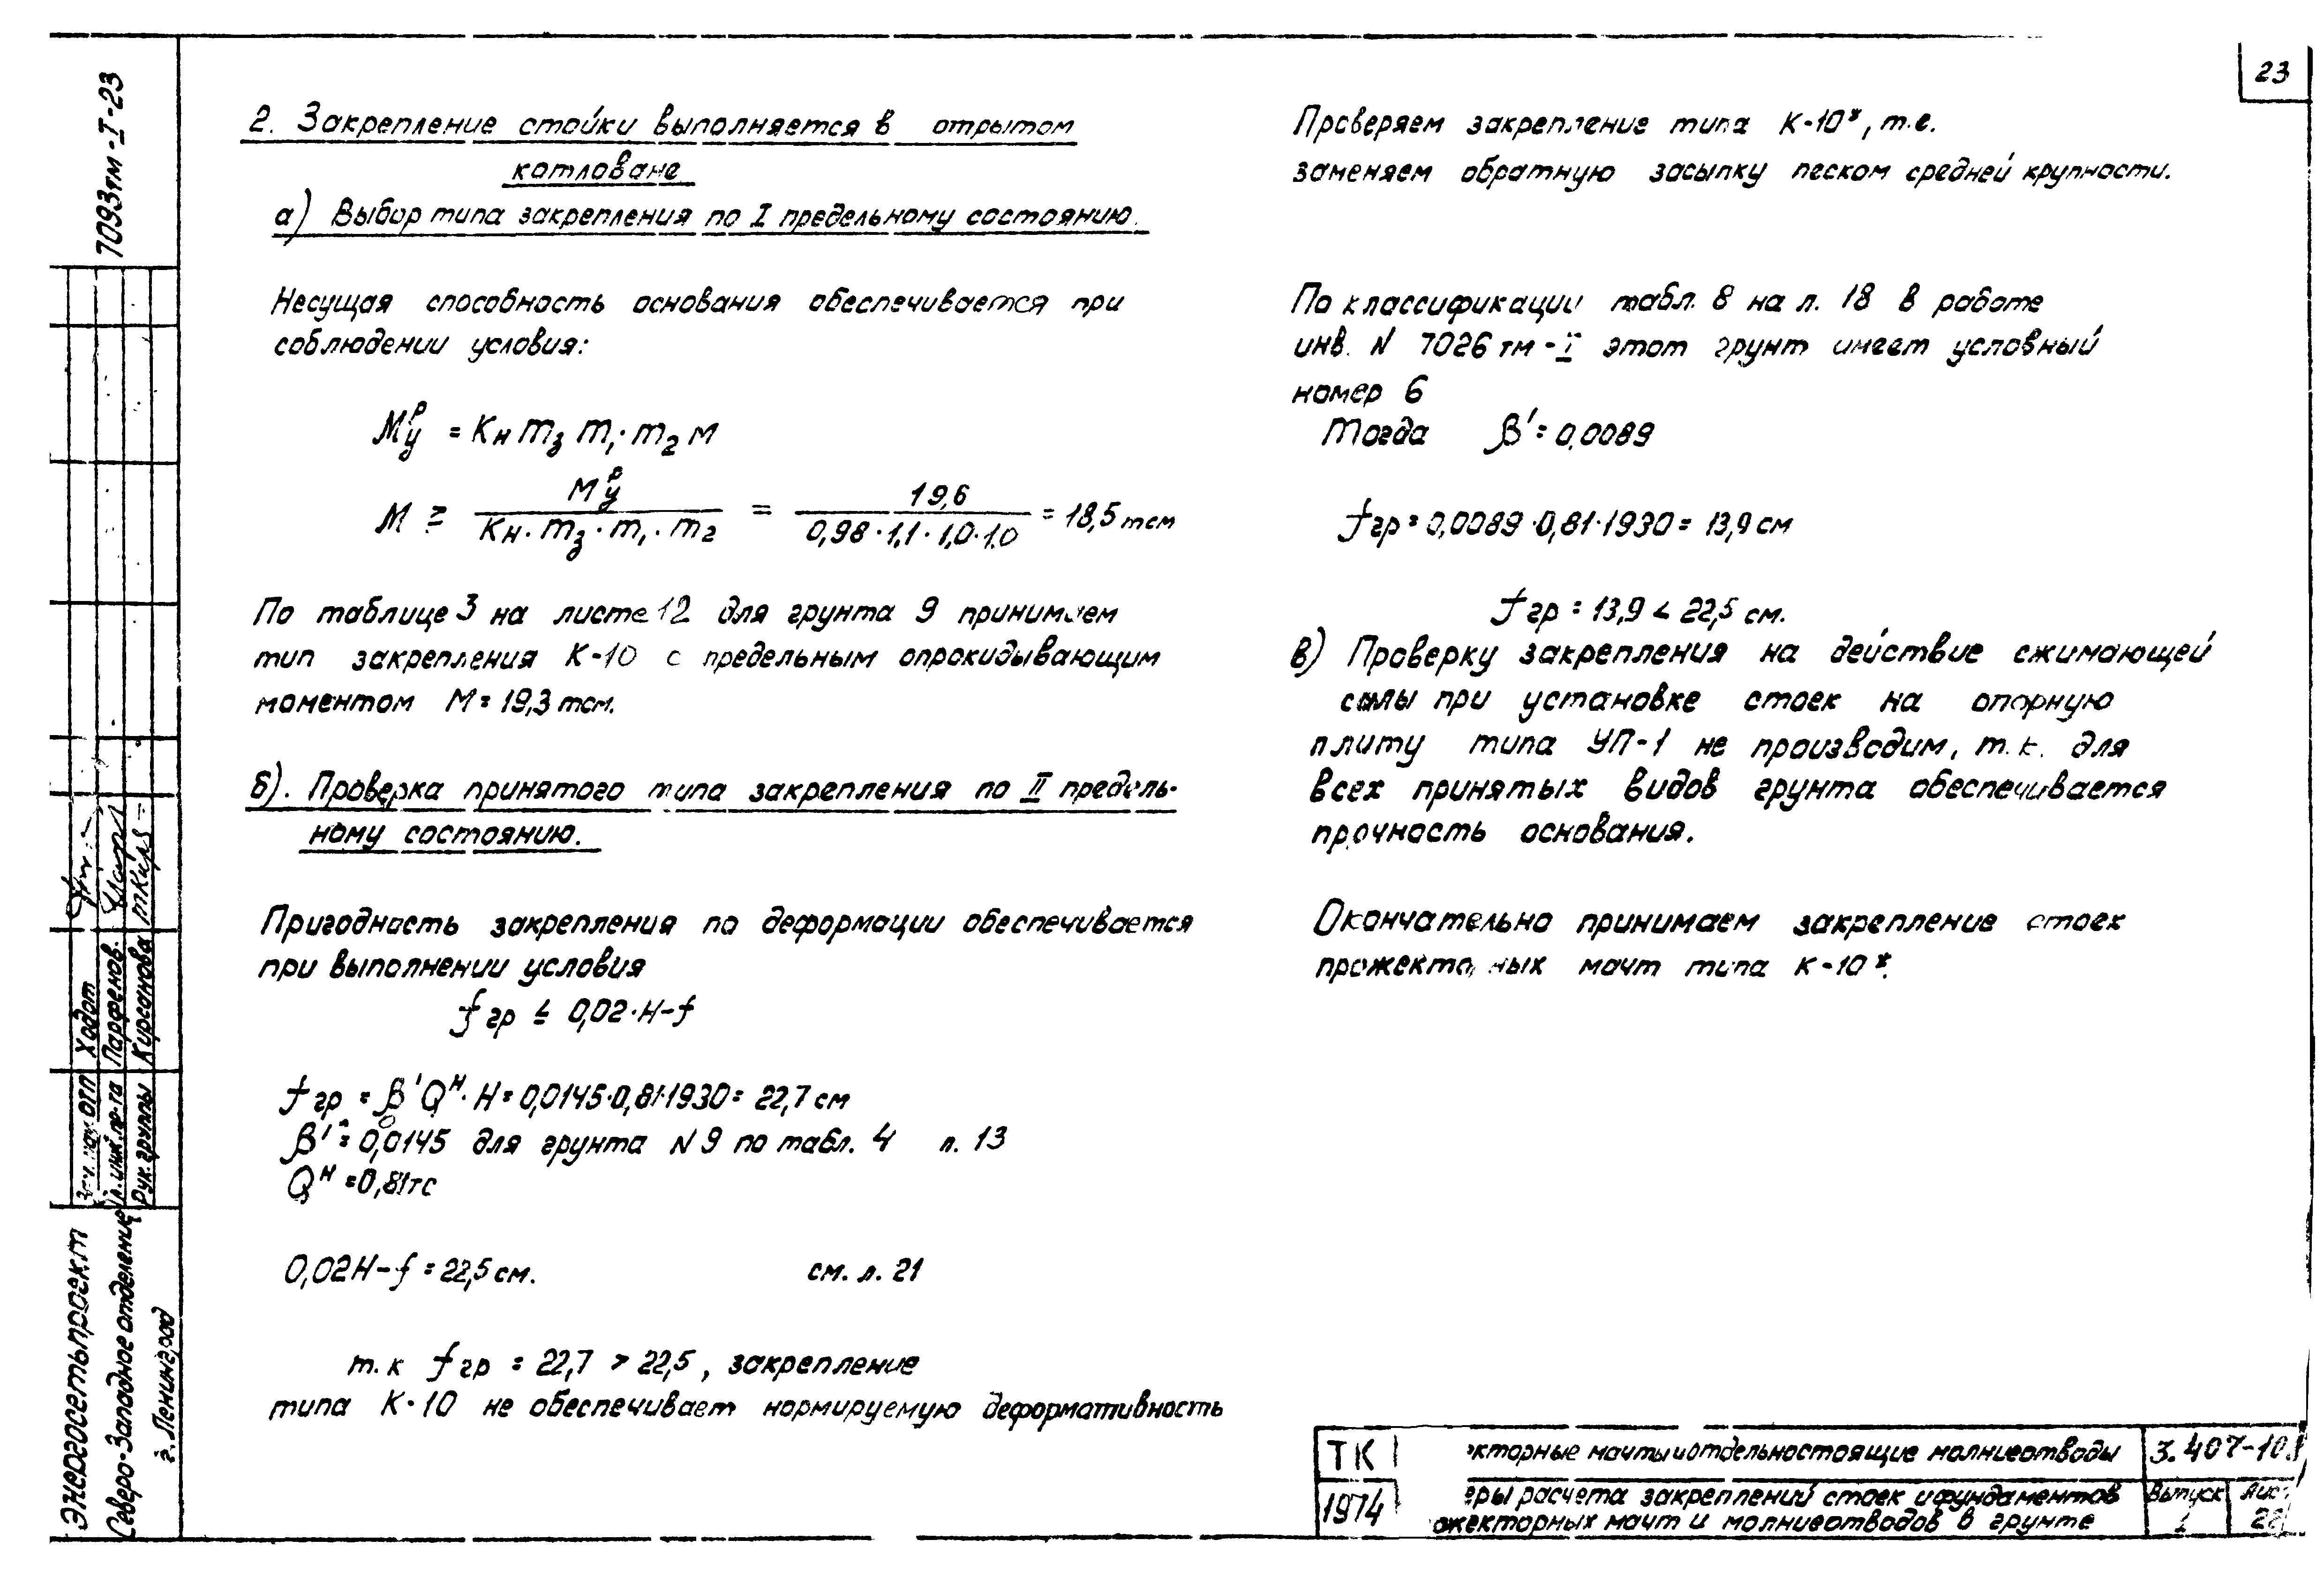 23
7093тм-I-23
2. Закрепление стойки выполняется в отрытом
котловане
а) Выбор типа закрепления по I предельному состоянию.
Несущая способность основания обеспечивается при
соблюдении условия:
Mᵖу = Kн m₃ m₁·m₂ M
M ≥ Mᵖу / Kн·m₃·m₁·m₂ = 19,6 / 0,98·1,1·1,0·1,0 = 18,5 тсм
По таблице 3 на листе 12 для грунта 9 принимаем
тип закрепления К-10 с предельным опрокидывающим
моментом M = 19,3 тсм.
б). Проверка принятого типа закрепления по II предель-
ному состоянию.
Пригодность закрепления по деформации обеспечивается
при выполнении условия
f гр ≤ 0,02·H-f
f гр = β'Qᴴ·H = 0,0145·0,81·1930 = 22,7 см
β' = 0,0145 для грунта N 9 по табл. 4 л. 13
Qᴴ = 0,81тс
0,02H-f = 22,5 см. см. л. 21
т.к f гр = 22,7 > 22,5, закрепление
типа К-10 не обеспечивает нормируемую деформативность
Проверяем закрепление типа К-10ˣ, т.е.
заменяем обратную засыпку песком средней крупности.
По классификации табл. 8 на л. 18 в работе
инв. N 7026 тм-I этот грунт имеет условный
номер 6
Тогда β' = 0,0089
f гр = 0,0089·0,81·1930 = 13,9 см
f гр = 13,9 < 22,5 см.
в) Проверку закрепления на действие сжимающей
силы при установке стоек на опорную
плиту типа УП-1 не производим, т.к. для
всех принятых видов грунта обеспечивается
прочность основания.
Окончательно принимаем закрепление стоек
прожекторных мачт типа К-10ˣ.
ОТП Ходот
Парфенов
Рук. группы Кирсанова
Энергосетьпроект
Северо-Западное отделение
г. Ленинград
ТК
1974
екторные мачты и отдельностоящие молниеотводы
еры расчета закреплений стоек и фундаментов
ожекторных мачт и молниеотводов в грунте
3.407-10
Выпуск
I
Лис
22